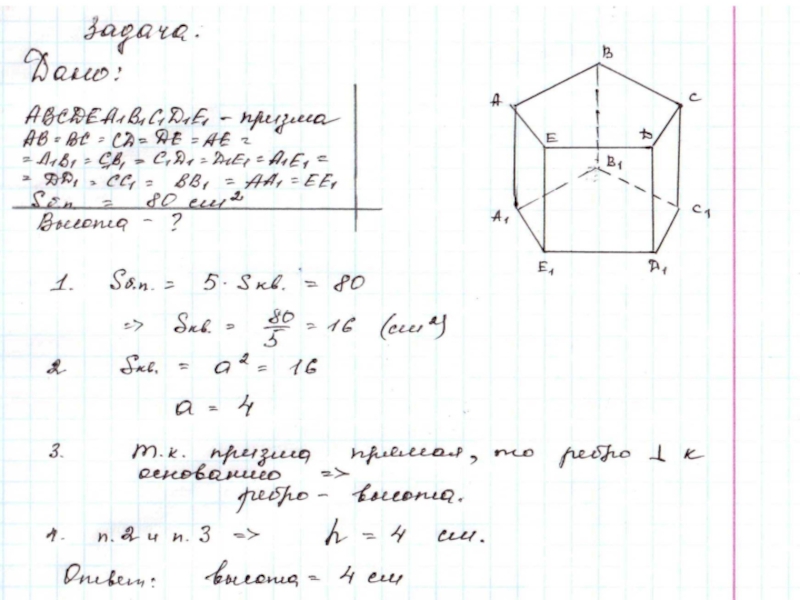 Задача.
Дано:
ABCDEA1B1C1D1E1 - призма
AB = BC = CD = DE = AE =
= A1B1 = CB1 = C1D1 = D1E1 = A1E1 =
= DD1 = CC1 = BB1 = AA1 = EE1
Sб.п. = 80 см²
Высота - ?
B
A
C
E
D
B1
A1
C1
E1
D1
1. Sб.п. = 5 · Sкв. = 80
=> Sкв. = 80/5 = 16 (см²)
2 Sкв. = a² = 16
a = 4
3. т.к. призма прямая, то ребро ⊥ к
основанию =>
ребро - высота.
4. п.2 и п.3 => h = 4 см.
Ответ: высота = 4 см